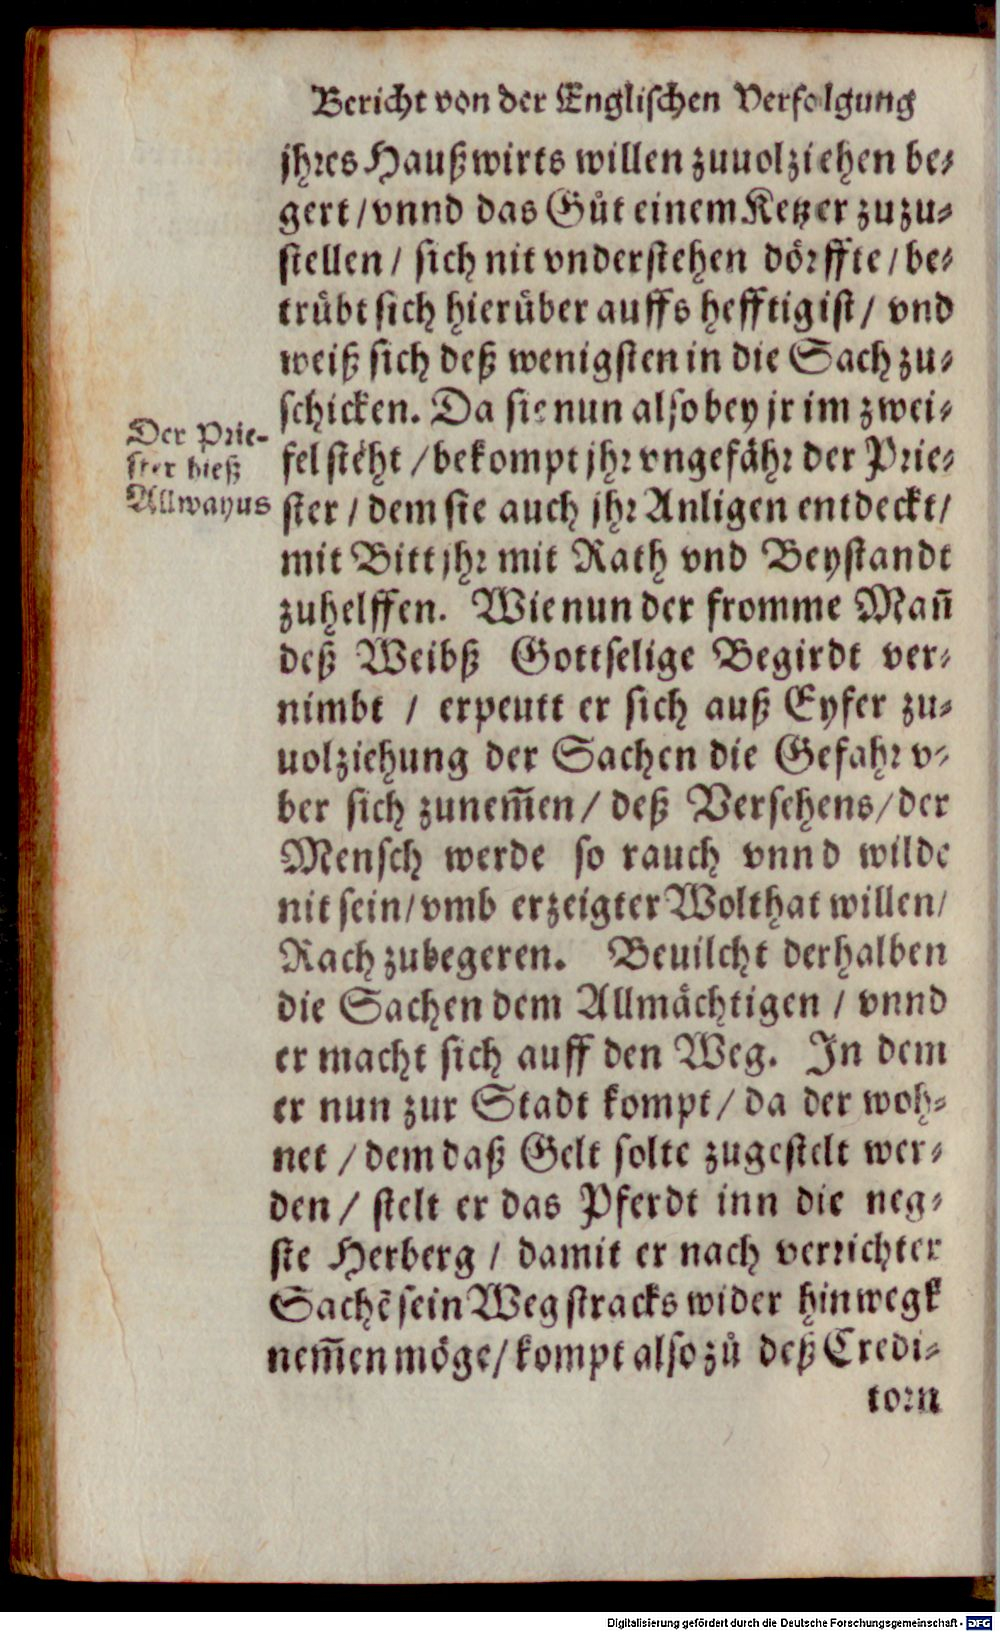 Bericht von der Englischen Verfolgung
jhres Haußwirts willen zuuolziehen be⸗
gert / vnnd das Gůt einem Ketzer zuzu⸗
stellen / sich nit vnderstehen dörffte / be⸗
trübt sich hierüber auffs hefftigist / vnd
weiß sich deß wenigsten in die Sach zu⸗
schicken. Da sie nun also bey jr im zwei⸗
fel stëht / bekompt jhr vngefähr der Prie⸗
ster / dem sie auch jhr Anligen entdeckt /
mit Bitt jhr mit Rath vnd Beystandt
zuhelffen. Wie nun der fromme Mañ
deß Weibß Gottselige Begirdt ver⸗
nimbt / erpeutt er sich auß Eyfer zu⸗
uolziehung der Sachen die Gefahr v⸗
ber sich zunem̃en / deß Versehens / der
Mensch werde so rauch vnnd wilde
nit sein / vmb erzeigter Wolthat willen /
Rach zubegeren. Beuilcht derhalben
die Sachen dem Allmächtigen / vnnd
er macht sich auff den Weg. In dem
er nun zur Stadt kompt / da der woh⸗
net / dem daß Gelt solte zugestelt wer⸗
den / stelt er das Pferdt inn die neg⸗
ste Herberg / damit er nach verrichter
Sachẽ sein Weg stracks wider hinwegk
nem̃en möge / kompt also zů deß Credi⸗
torn
Der Prie-
ster hieß
Allwayus
Digitalisierung gefördert durch die Deutsche Forschungsgemeinschaft - DFG